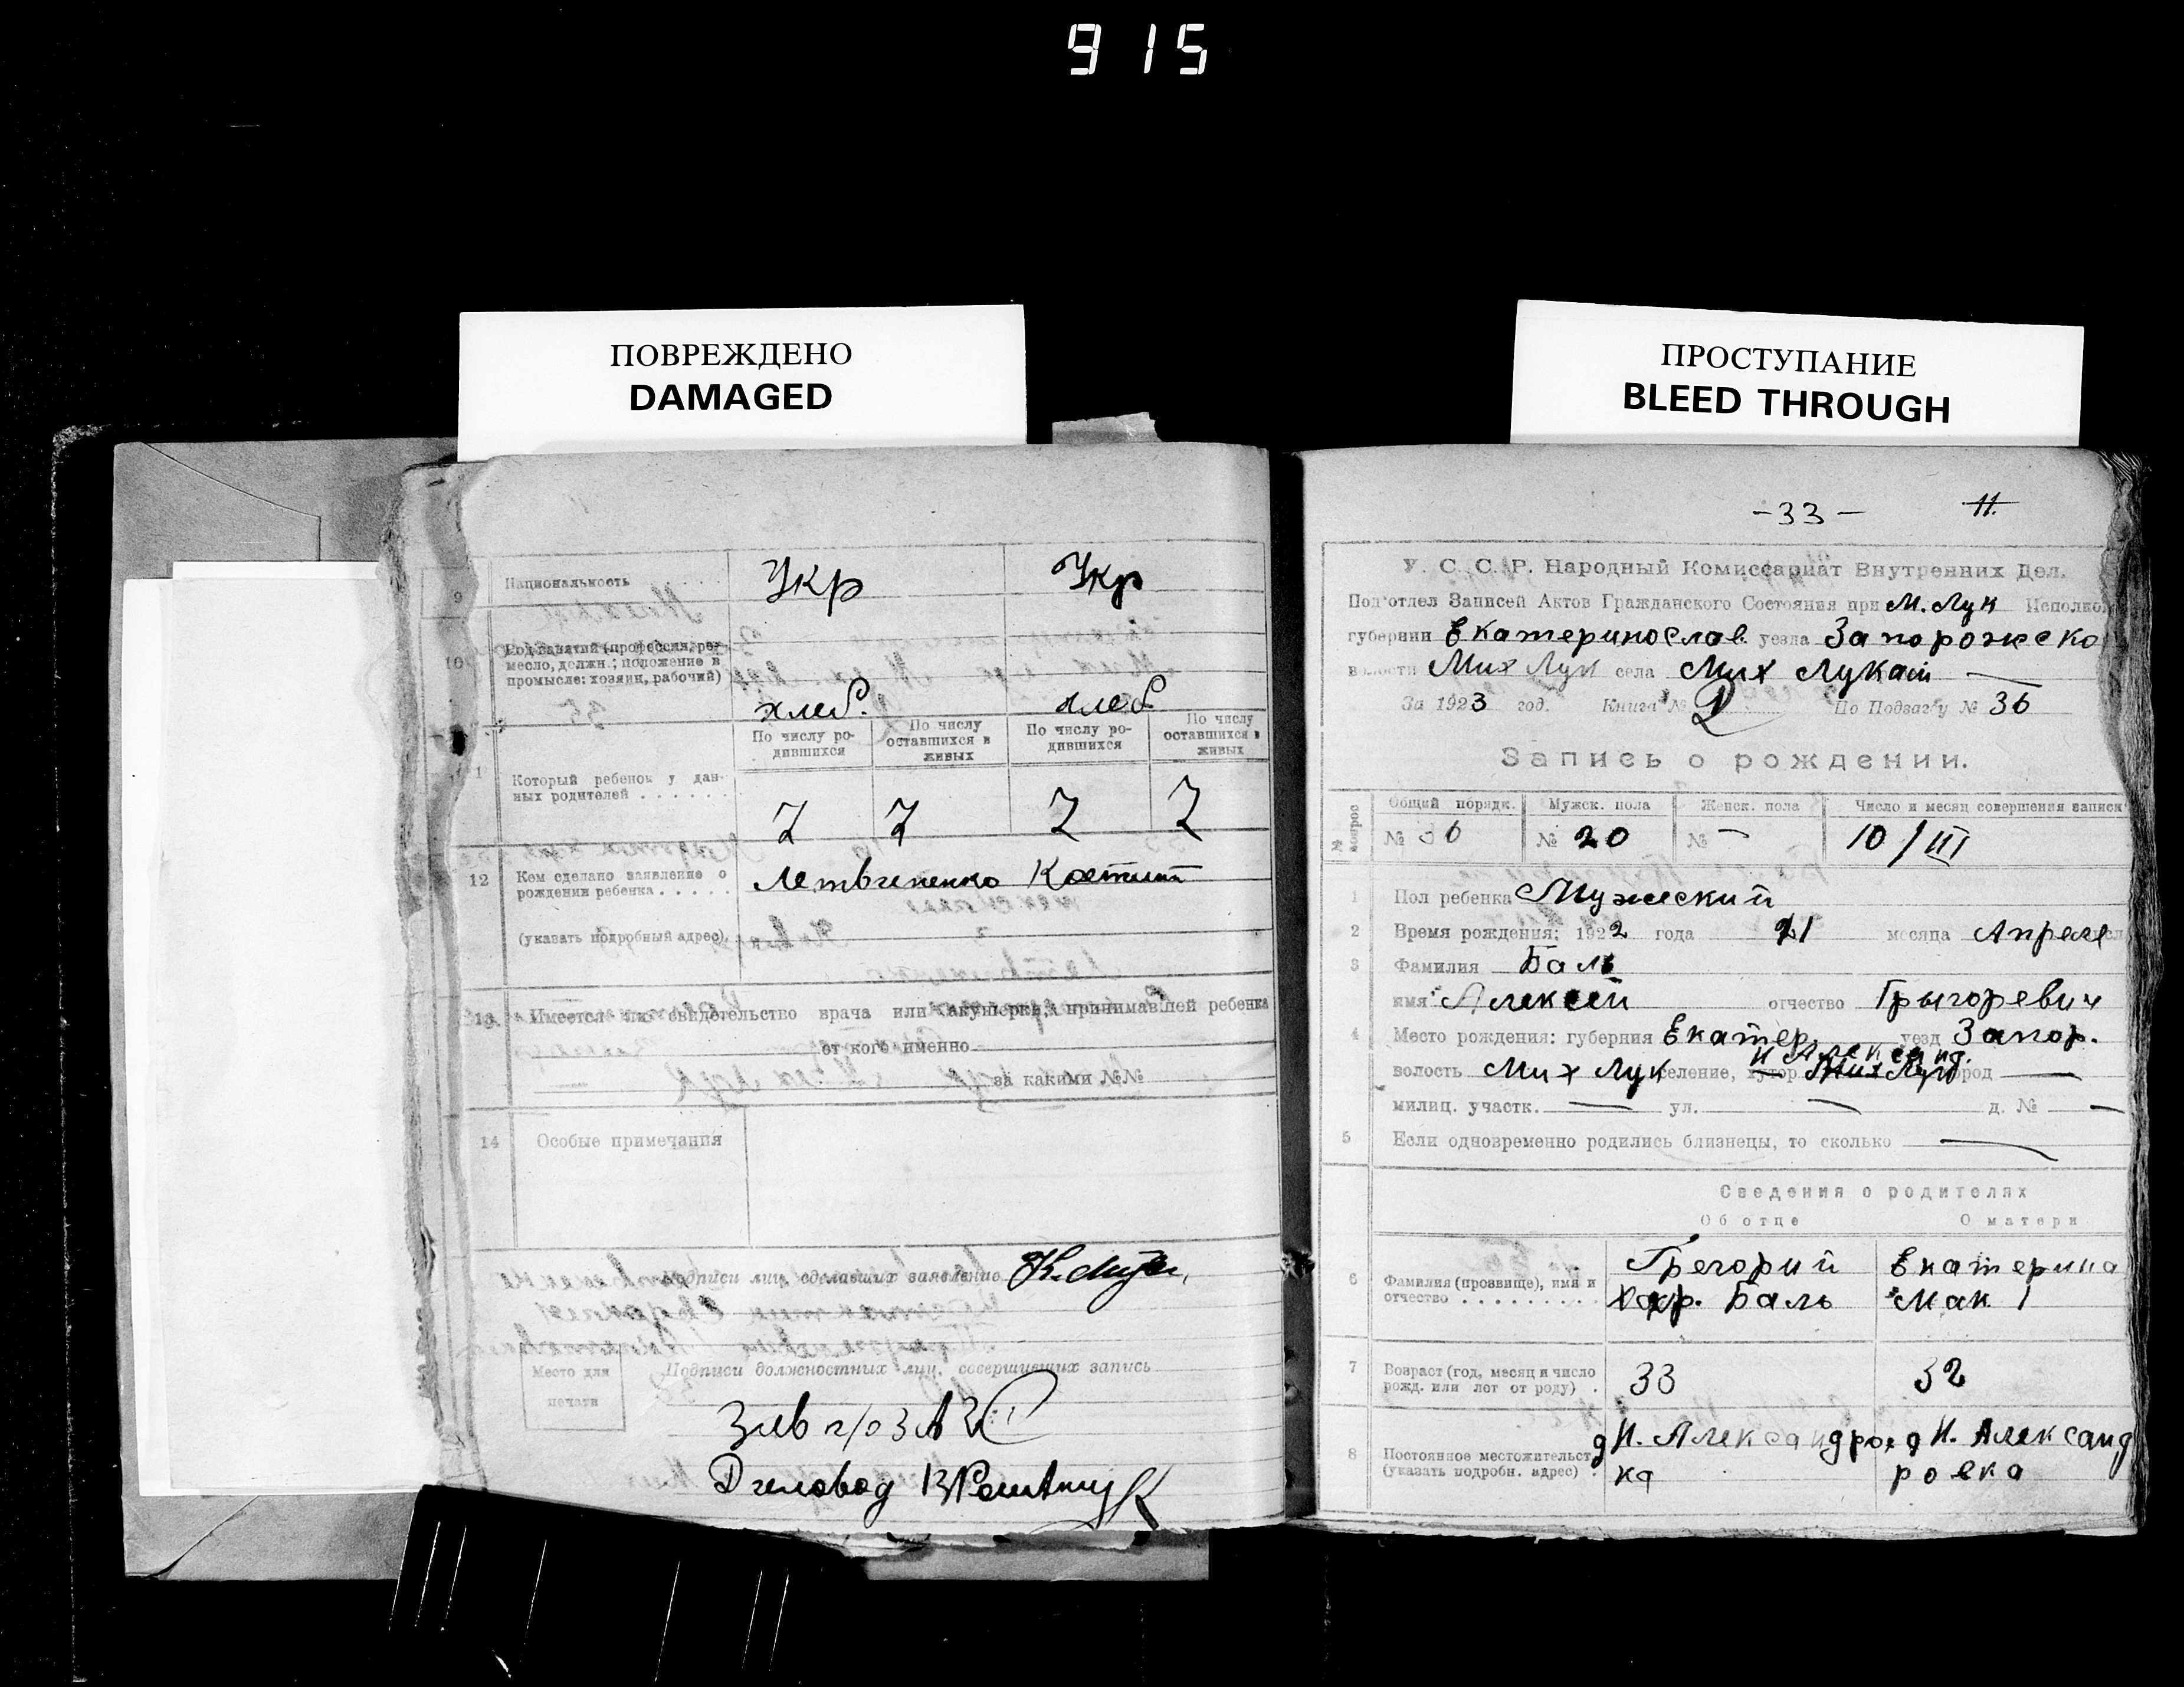 915
ПОВРЕЖДЕНО
DAMAGED
ПРОСТУПАНИЕ
BLEED THROUGH
9 Национальность Укр Укр
10 Род занятий (профессия, ре-
месло, должн.; положение в
промысле: хозяин, рабочий)
хлеб. хлеб
По числу ро-
дившихся
По числу
оставшихся в
живых
По числу ро-
дившихся
По числу
оставшихся в
живых
Который ребенок у дан-
ных родителей . . . . . .
2 2 2 2
12 Кем сделано заявление о
рождении ребенка . . . . .
(указать подробный адрес).
13 Имеется ли свидетельство врача или акушерки, принимавшей ребенка
от кого именно
за какими №№
14 Особые примечания
Подписи лиц, сделавших заявление
Подписи должностных лиц, совершивших запись
Место для
печати
- 33 - 11.
У. С. С. Р. Народный Комиссариат Внутренних Дел.
Под'отдел Записей Актов Гражданского Состояния при М. Лук Исполко
губернии Екатеринослав. уезда Запорожско
волости Мих Лук села Мих Лукаш
За 1923 год. Книга № По Подзагсу № 36
Запись о рождении.
№ вопрос Общий порядк. Мужск. пола Женск. пола Число и месяц совершения записи
№ 36 № 20 № — 10/III
1 Пол ребенка Мужеский
2 Время рождения: 1922 года 21 месяца Апреле
3 Фамилия Баль
имя Алексей отчество Грыгоревич
4 Место рождения: губерния Екатер. уезд Запор.
Н Александ.
волость Мих Лук селение, хутор Мих Лук город —
милиц. участк. — ул. — д. № —
5 Если одновременно родились близнецы, то сколько —
Сведения о родителях
Об отце О матери
6 Фамилия (прозвище), имя и
отчество . . . . . . . . .
Грегорий
Хар. Баль
Екатерина
Мак
7 Возраст (год, месяц и число
рожд. или лет от роду) .
33 32
8 Постоянное местожительст
(указать подробн. адрес) .
д Н. Александров
ка
д Н. Александ
ровка